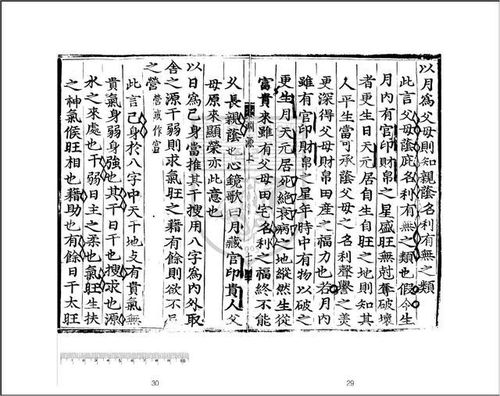 以月爲父母則知親蔭名利有無之類
此言父母蔭庇名利有無之類也假令生
月內有官印財帛之星盛旺無尅奪破壞
者更生日天元居自生自旺之地則知其
人平生當可承蔭父母之名利聲譽之美
更深得父母財帛田産之福力也若月內
雖有官印財帛之星年時中有物以破之
更生月天元居死絶衰病之地縱然生從
富貴來雖有父母田宅名利之福終不能
上
乆長親蔭也心鏡歌曰月藏官印貴人父
母原來顯榮亦此意也
以日爲己身當推其干搜用八字爲內外取
舍之源干弱則求氣旺之藉有餘則欲不足
之營 營或作官
此言己身於八字中天干地支有貴氣
貴氣身弱身強也其干日干也搜求也源
水之來處也干弱日主之柔也氣旺生扶
之神氣候旺相也藉助也有餘日干太旺
30
29